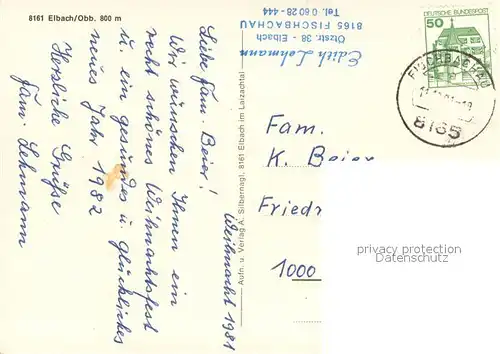 8161 Elbach/Obb. 800 m
Edith Lehmann
Ötzstr. 38 - Elbach
8165 FISCHBACHAU
Tel. 0 80 28 - 444
DEUTSCHE BUNDESPOST
50
FISCHBACHAU
8165
Weihnacht 1981
Liebe Fam. Beier!
Wir wünschen Ihnen ein
recht schönes Weihnachtsfest
u. ein gesundes u. glückliches
neues Jahr 1982
Herzliche Grüße
Fam. Lehmann
Aufn. u. Verlag A. Silbernagl, 8161 Elbach im Laizachtal
Fam.
K. Beier
Friedr
1000
privacy protection
Datenschutz